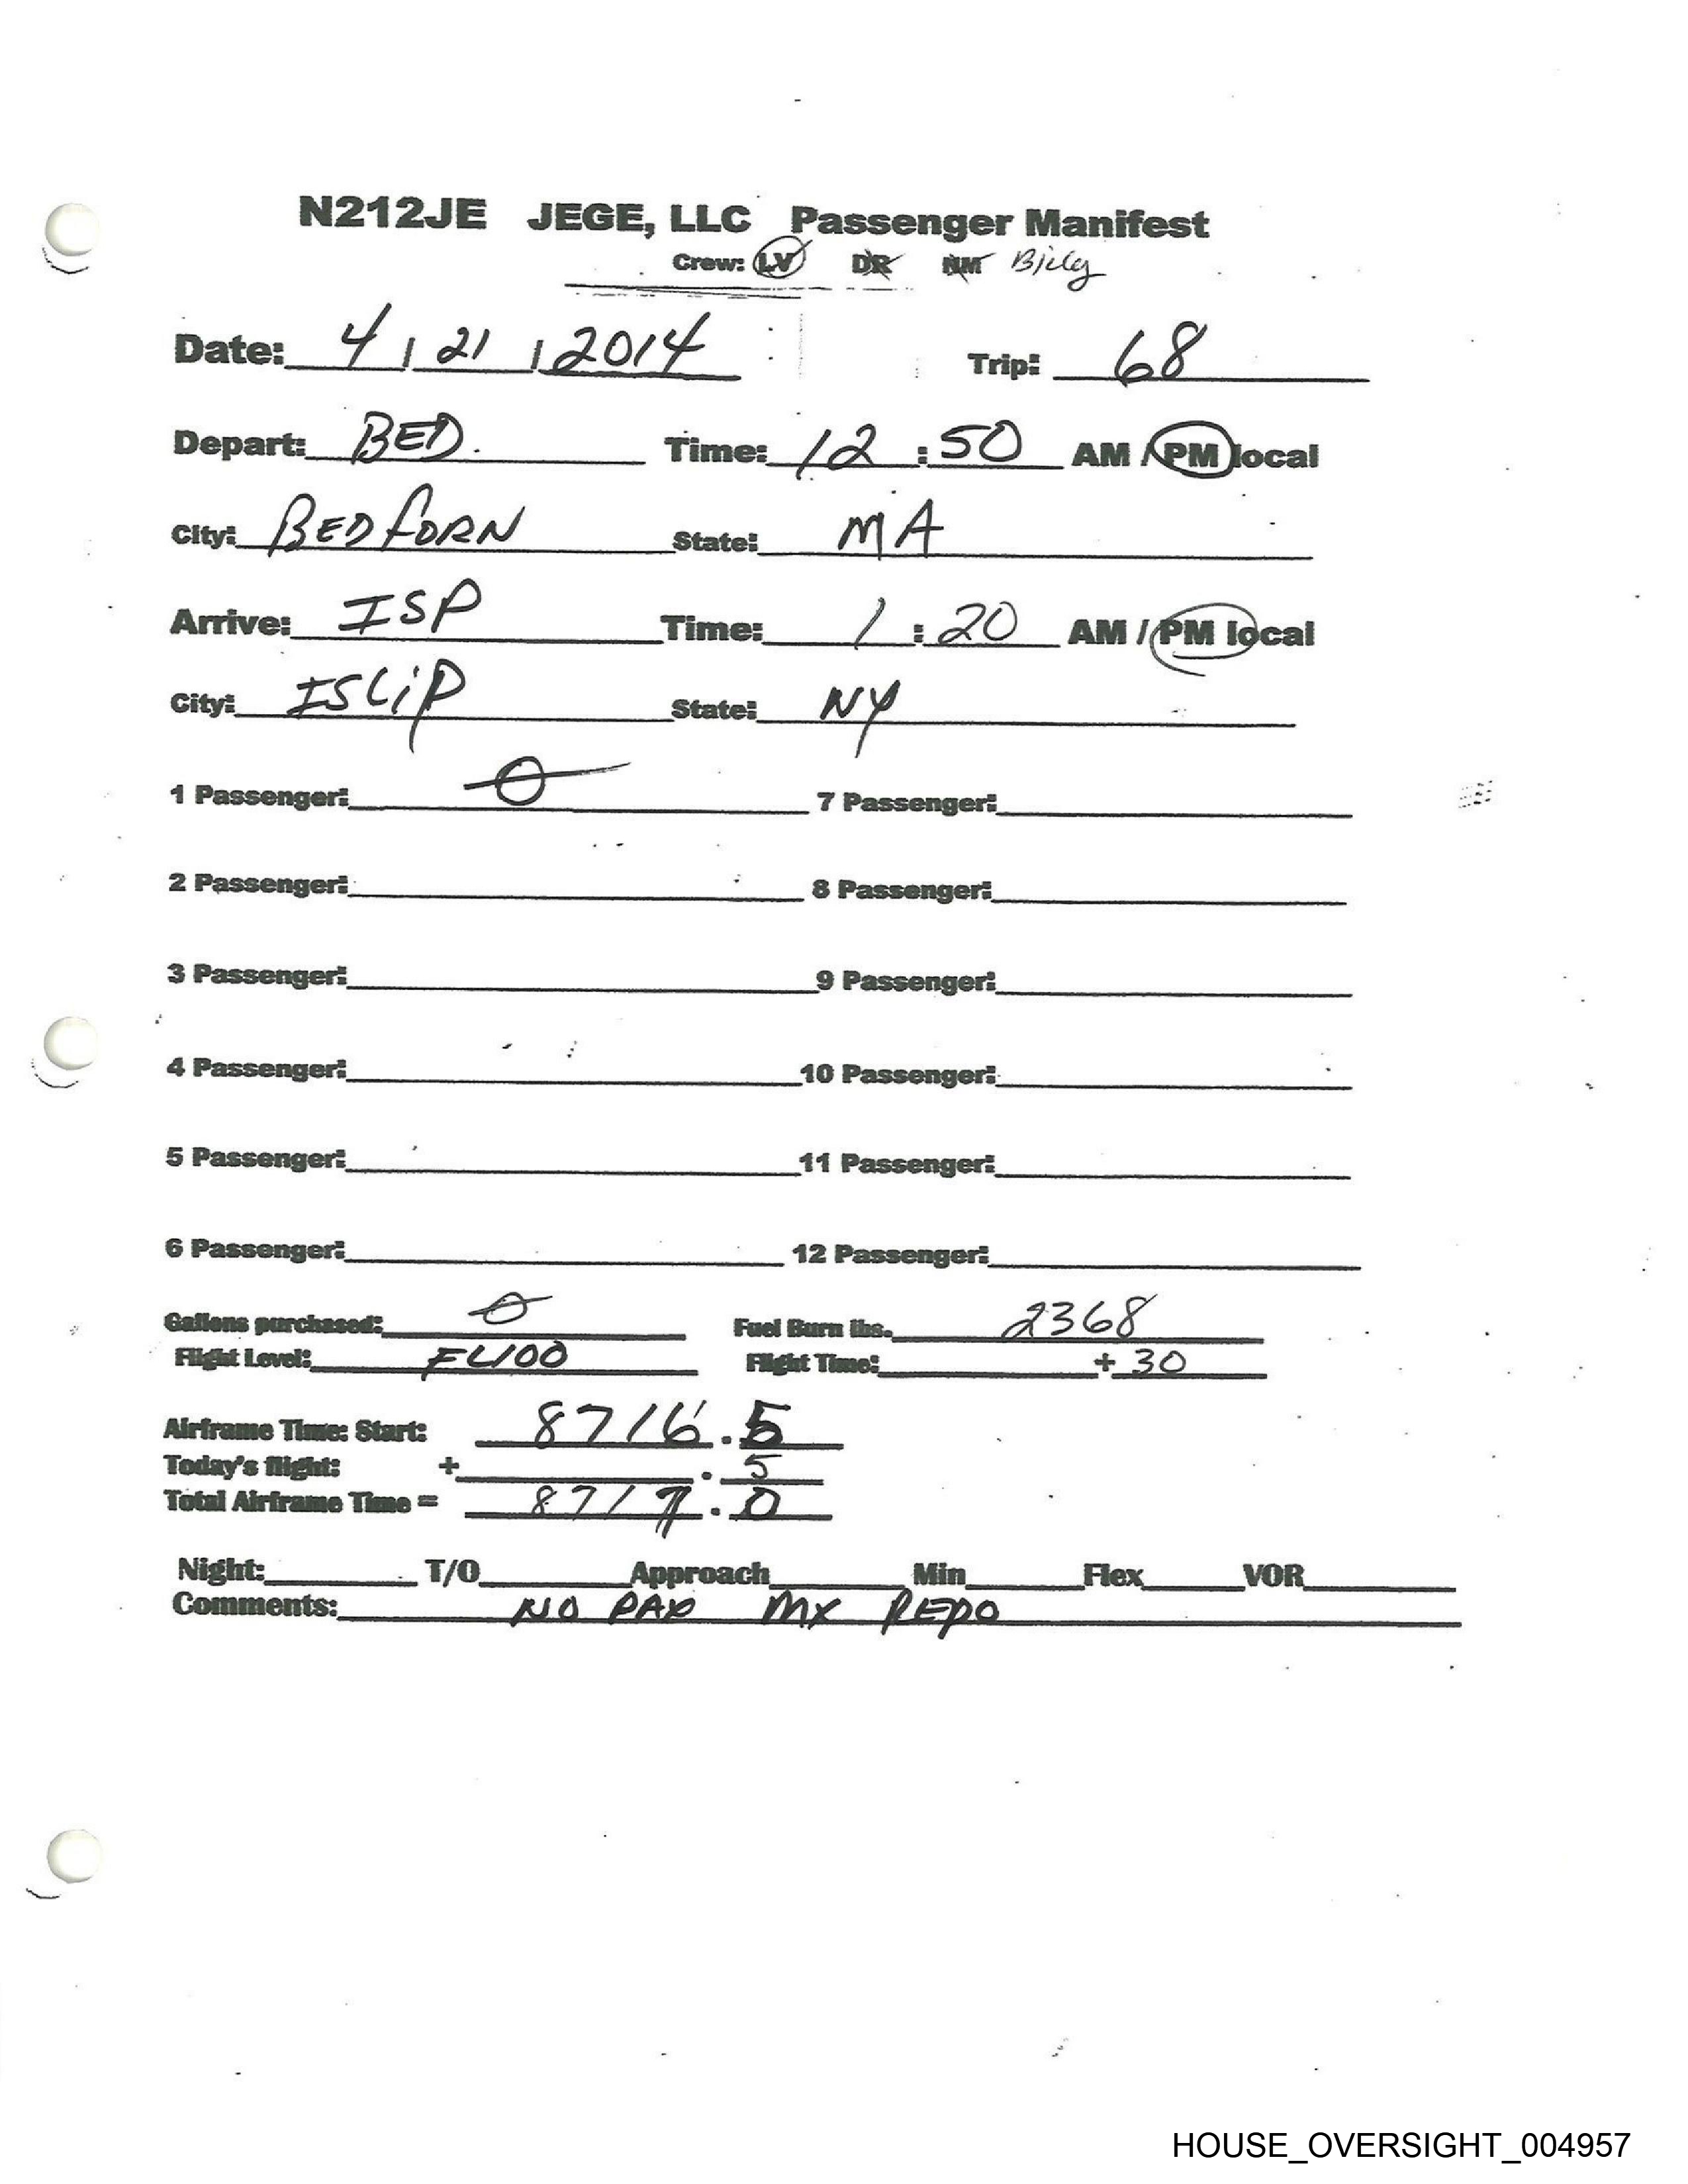 N212JE JEGE, LLC Passenger Manifest
Crew: LV DR NM
Date: 4 / 21 / 2014 Trip: 68
Depart: BED. Time: 12 : 50 AM / PM local
City: BEDFORN State: MA
Arrive: ISP Time: 1 : 20 AM / PM local
City: ISLiP State: NY
1 Passenger: 0 7 Passenger:
2 Passenger: 8 Passenger:
3 Passenger: 9 Passenger:
4 Passenger: 10 Passenger:
5 Passenger: 11 Passenger:
6 Passenger: 12 Passenger:
Gallons purchased: 0 Fuel Burn lbs. 2368
Flight Level: FL100 Flight Time: + 30
Airframe Time: Start: 8716.5
Today's flight: + .5
Total Airframe Time = 8717.0
Night: T/O Approach Min Flex VOR
Comments: NO PAX MX REPO
HOUSE_OVERSIGHT_004957